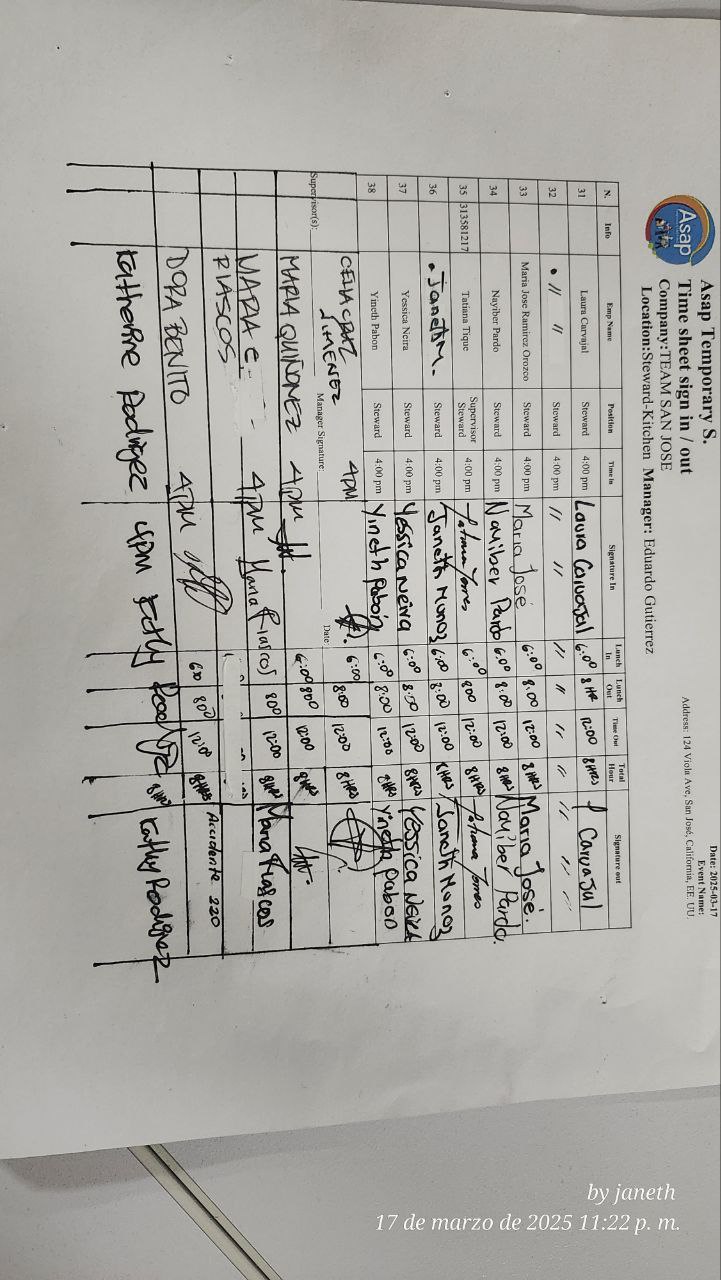 Asap
Asap Temporary S.
Time sheet sign in / out
Company:TEAM SAN JOSE
Location:Steward-Kitchen Manager: Eduardo Gutierrez
Date: 2025-03-17
Event Name:
Address: 124 Viola Ave, San José, California, EE. UU.
N. Info Emp Name Position Time in Signature In Lunch In Lunch Out Time Out Total Hour Signature out
31 Laura Carvajal Steward 4:00 pm Laura Carvajal 6:00 8 HR 12:00 8HRS l Carvajal
32 " " Steward 4:00 pm " " " " " " " "
33 Maria Jose Ramirez Orozco Steward 4:00 pm Maria José 6:00 8:00 12:00 8HRS Maria José.
34 Nayiber Pardo Steward 4:00 pm Nayiber Pardo 6:00 8:00 12:00 8HRS Nayiber Pardo.
35 313581217 Tatiana Tique Supervisor Steward 4:00 pm 6:00 800 12:00 8HRS
36 Janeth M. Steward 4:00 pm Janeth Munoz 6:00 8:00 12:00 8HRS Janeth Munoz
37 Yessica Neira Steward 4:00 pm Yessica Neira 6:00 8:00 12:00 8HRS Yessica Neira
38 Yineth Pabon Steward 4:00 pm Yineth Pabón 6:00 8:00 12:00 8HRS Yineth Pabon
CELIA CRAZ JIMENEZ 4PM 6:00 8:00 12:00 8HRS
Supervisor(s): Manager Signature: Date:
MARIA QUIÑONEZ 4PM 6:00 800 12:00 8HRS
MARIA E. RIASCOS 4PM Maria Riascos 800 12:00 8HRS Maria Riascos
Accidente 220
DORA BENITO 4PM 600 800 12:00 8HRS
Katherine Rodrigez 4pm Kathy Rodrigez 8HRS Kathy Rodriguez
by janeth
17 de marzo de 2025 11:22 p. m.